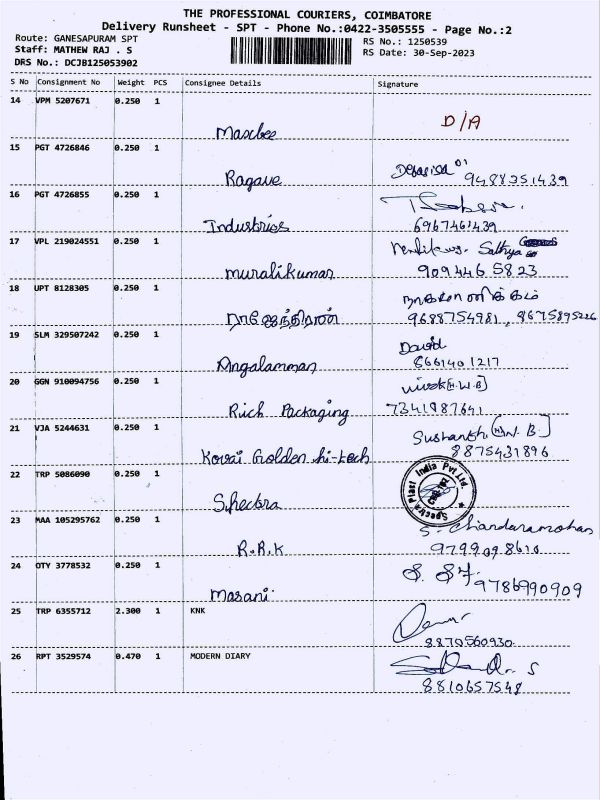 THE PROFESSIONAL COURIERS, COIMBATORE
Delivery Runsheet - SPT - Phone No.:0422-3505555 - Page No.:2
Route: GANESAPURAM SPT
RS No.: 1250539
Staff: MATHEW RAJ . S
RS Date: 30-Sep-2023
DRS No.: DCJB125053902
S No Consignment No Weight PCS Consignee Details Signature
14 VPM 5207671 0.250 1
D/A
15 PGT 4726846 0.250 1
Ragave 9488251439
16 PGT 4726855 0.250 1
Industries 6967461439
17 VPL 219024551 0.250 1
Sathya
muralikumar 909446 5823
18 UPT 8128305 0.250 1
9688754981, 8675895226
19 SLM 329507242 0.250 1
David
Angalamman 8661401217
20 GGN 910094756 0.250 1
Vivek [H.W.B]
Rich Packaging 7341987641
21 VJA 5244631 0.250 1
Sushanth (H.W.B.)
Kovai Golden hi-tech 8875431896
22 TRP 5086090 0.250 1
Spectra Plast India Pvt Ltd.
Spectra
23 MAA 105295762 0.250 1
S. Chandaramohan
R.R.K 979909 8610
24 OTY 3778532 0.250 1
Masani 9786990909
25 TRP 6355712 2.300 1 KNK
8870560930
26 RPT 3529574 0.470 1 MODERN DIARY
8810657548